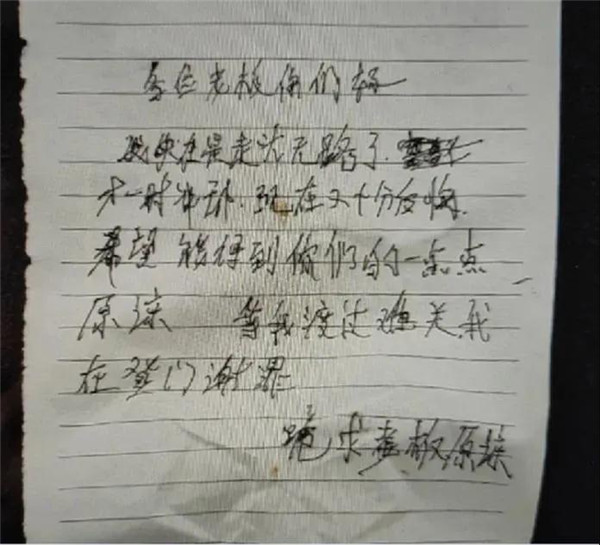 各位老板俩们好
我实在是走头无路了.
才一时冲动.现在又十分后悔.
希望能得到你们的一点点
原谅 等我渡过难关我
在登门谢罪
跪求老板原谅